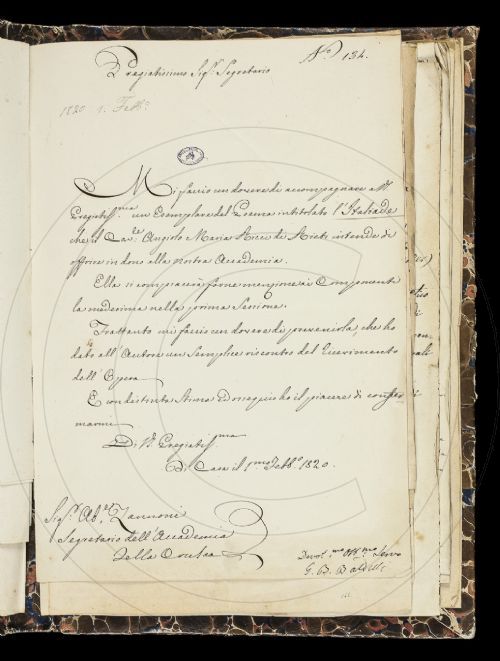 N.º 134.
Pregiatissimo Sig.r Segretario
1820 1. Febb.º
Mi faccio un dovere di accompagnare a V.
Pregiatiss.ma un Esemplare del Poema intitolato l'Italiade
che il Cav.re Angiolo Maria Ricci di Rieti intende di
offrire in dono alla nostra Accademia.
Ella si compiacerà farne menzione ai Componenti
la medesima nella prima Sessione.
Trattanto mi faccio un dovere di prevenirla, che ho
dato all'Autore un Semplice riscontro del ricevimento
dell'Opera
E con distinta Stima ed ossequio ho il piacere di confer
marmi
Di V. Pregiatiss.ma
Di Casa il 1.mo Febb.º 1820.
Sig.r Ab.e Zannoni
Segretario dell'Accademia
della Crusca
Devot.mo Obb.mo Servo
G. B. Baldelli